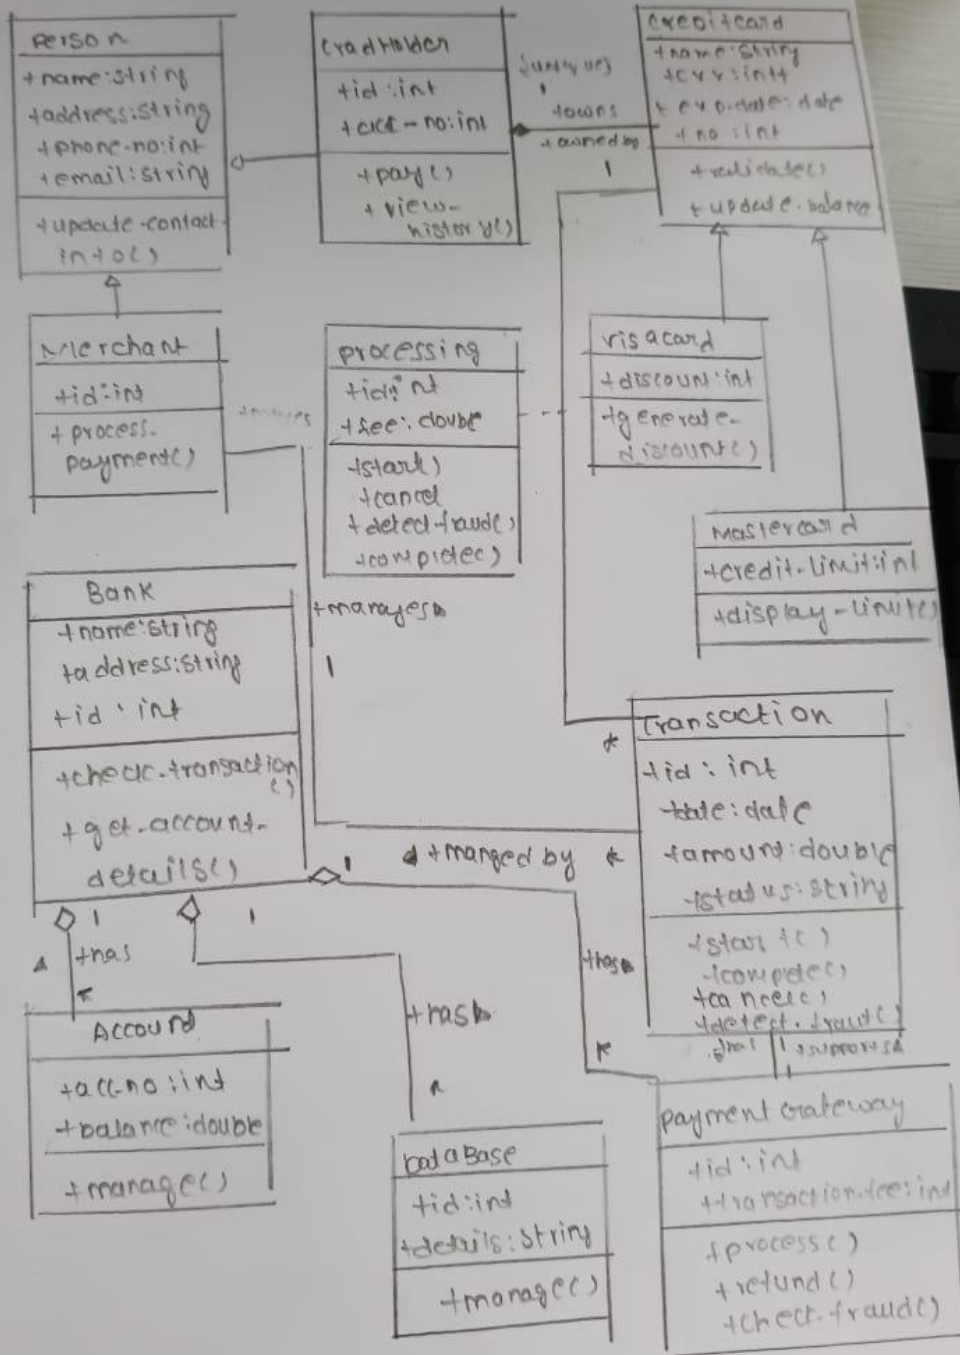 Person
+name:string
+address:string
+phone-no:int
+email:string
+update-contact-
into()
CradHolder
+id:int
+cict-no:int
+pay()
+view-
history()
1
+owns
+owned by
1
creditcard
+name:String
+cvv:int+
+exp.date:date
+no:int
+validate()
+update.balance
Merchant
+id:int
+process-
payment()
processing
+id:int
+fee:double
+start()
+cancel
+detect-fraud()
+complete()
visacard
+discount:int
+generate-
discount()
Mastercard
+credit-limit:int
+display-limit()
+manages
1
Bank
+name:string
+address:string
+id:int
+check.transaction
()
+get.account-
details()
*
Transaction
+id:int
+date:date
+amount:double
+status:string
+start()
+compete()
+cancel()
+detect.fraud()
+manged by
*
1
1
1
+has
*
+has
*
+has
*
1
+supports
Accound
+acc-no:int
+balance:double
+manage()
DataBase
+id:int
+details:String
+manage()
payment Grateway
+id:int
+transaction.fee:int
+process()
+refund()
+check.fraud()